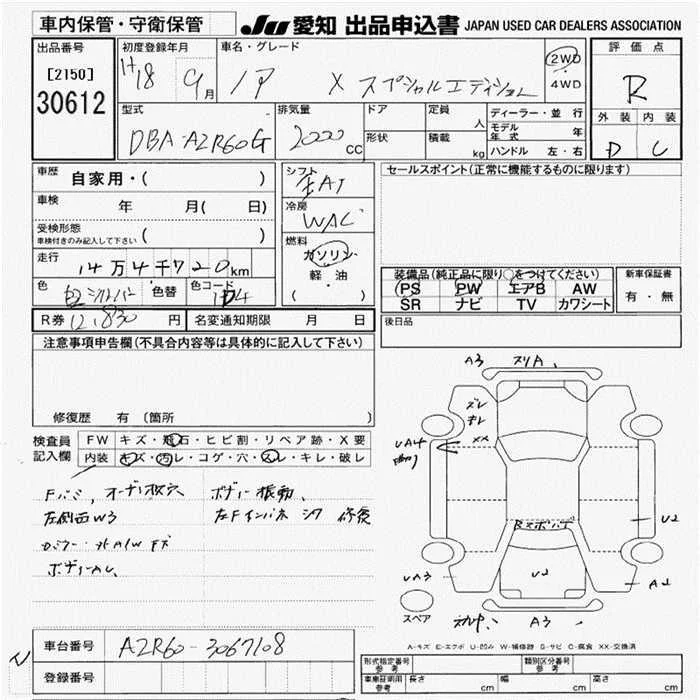 車内保管・守衛保管
JU 愛知 出品申込書 JAPAN USED CAR DEALERS ASSOCIATION
出品番号
[2150]
30612
初度登録年月
H18 9月
車名・グレード
ノア X スペシャルエディション
2WD
・
4WD
評価点
R
外装 内装
D C
型式
DBA-AZR60G
排気量
2000 CC
ドア
形状
定員 人
積載 kg
ディーラー・並行
モデル年式 年
ハンドル 左・右
車歴 自家用・( )
車検 年 月( 日)
受検形態
車検付きのみ記入して下さい ( )
走行 14万4千720km
色 シルバー 色替 色コード 1D4
シフト AT
冷房 WAC
燃料
ガソリン・
軽・油
( )
セールスポイント(正常に機能するものに限ります)
装備品(純正品に限り○をつけてください)
PS PW エアB AW
SR ナビ TV カワシート
新車保証書
有・無
後日品
R券 12,830 円 名変通知期限 月 日
注意事項申告欄(不具合内容等は具体的に記入して下さい)
修復歴 有 〔箇所
検査員
記入欄
FW キズ・飛石・ヒビ割・リペア跡・X要
内装 キズ・汚レ・コゲ・穴・スレ・キレ・破レ
左側面W3
ボデー振動、
左Fインパネ 修復
A3 スリA、
ズレ
キレ
XX
UA4
U2
U2
UA3
A2
A3
スペア
A-キズ E-エクボ U-凹み W-補修跡 S-サビ C-腐食 XX-交換済
車台番号 AZR60-3067108
登録番号
形式指定番号
参考
類別区分番号
参考
車庫証明用
参考
長さ cm 幅 cm 高さ cm